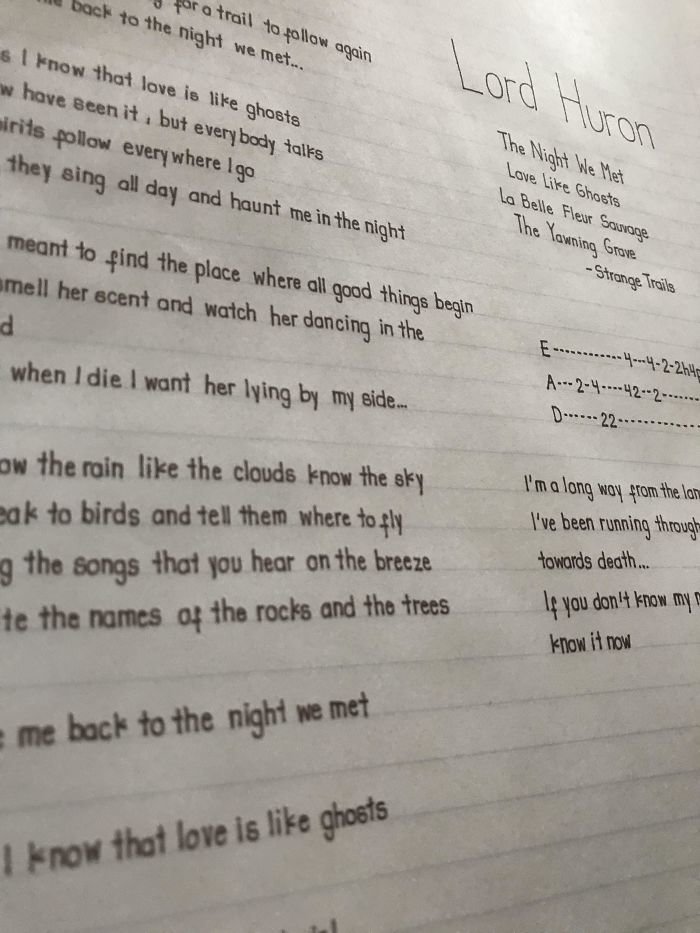 for a trail to follow again
back to the night we met...
I know that love is like ghosts
have seen it, but everybody talks
follow everywhere I go
they sing all day and haunt me in the night
meant to find the place where all good things begin
her scent and watch her dancing in the
when I die I want her lying by my side...
the rain like the clouds know the sky
to birds and tell them where to fly
the songs that you hear on the breeze
the names of the rocks and the trees
me back to the night we met
I know that love is like ghosts
Lord Huron
The Night We Met
Love Like Ghosts
La Belle Fleur Sauvage
The Yawning Grave
-Strange Trails
E------------4---4-2-2h4p
A---2-4----42--2-------
D------22------------
I'm a long way from the
I've been running through
towards death...
If you don't know my
know it now